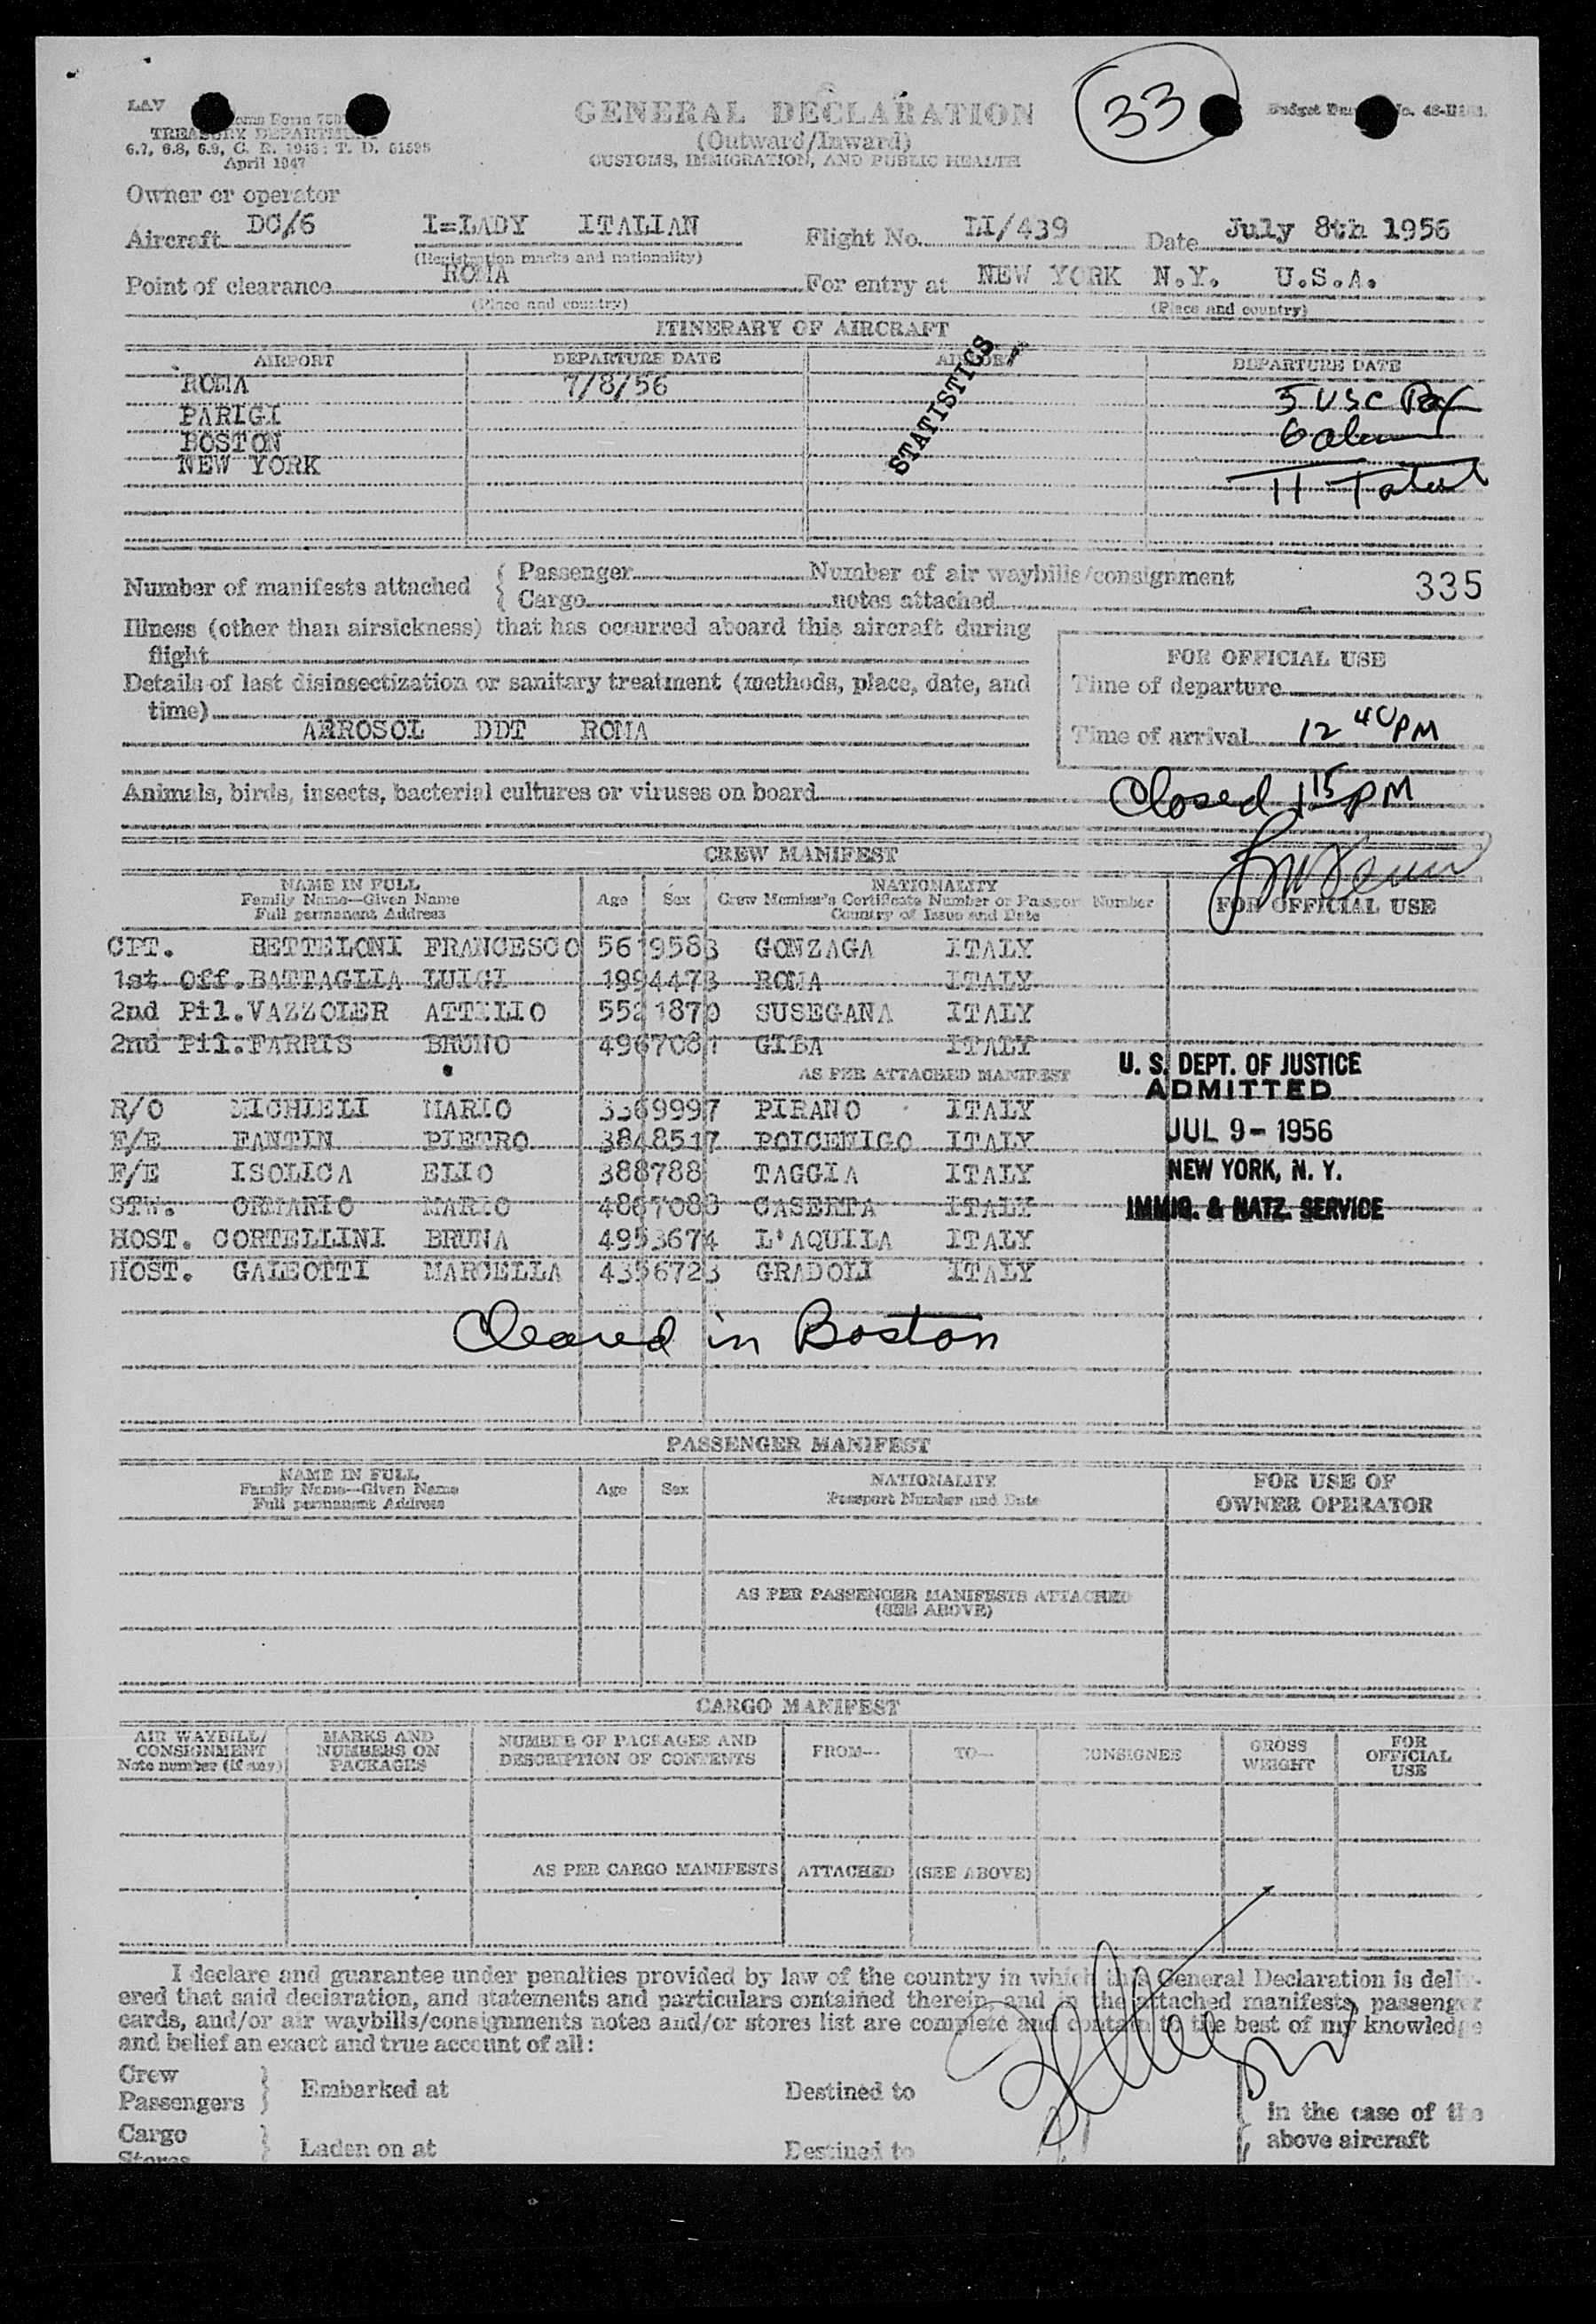 LAV
TREASURY DEPARTMENT
6.7, 6.8, 6.9, C. R. 1943; T. D. 51595
April 1947
GENERAL DECLARATION
(Outward/Inward)
CUSTOMS, IMMIGRATION, AND PUBLIC HEALTH
33
Owner or operator
Aircraft DC/6 I=LADY ITALIAN Flight No. LI/439 Date July 8th 1956
(Registration marks and nationality)
Point of clearance ROMA For entry at NEW YORK N.Y. U.S.A.
(Place and country) (Place and country)
ITINERARY OF AIRCRAFT
AIRPORT DEPARTURE DATE DEPARTURE DATE
STATISTICS
ROMA 7/8/56 5 USC
PARIGI
BOSTON 6
NEW YORK
11 Total
Number of manifests attached { Passenger Number of air waybills/consignment 335
{ Cargo notes attached
Illness (other than airsickness) that has occurred aboard this aircraft during
flight
FOR OFFICIAL USE
Details of last disinsectization or sanitary treatment (methods, place, date, and
time)
Time of departure
AEROSOL DDT ROMA
Time of arrival 12 40 PM
Animals, birds, insects, bacterial cultures or viruses on board
Closed 1 15 PM
CREW MANIFEST
NAME IN FULL
Family Name--Given Name
Full permanent Address
Age Sex
NATIONALITY
Crew Member's Certificate Number or Passport Number
Country of Issue and Date
FOR OFFICIAL USE
CPT. BETTELONI FRANCESCO 5619583 GONZAGA ITALY
1st Off. BATTAGLIA LUIGI 1994473 ROMA ITALY
2nd Pil. VAZZOLER ATTILIO 5521870 SUSEGANA ITALY
2nd Pil. FARRIS BRUNO 4967081 GIBA ITALY
AS PER ATTACHED MANIFEST
R/O MICHIELI MARIO 3369997 PIRANO ITALY
F/E FANTIN PIETRO 3848517 POLCENIGO ITALY
F/E ISOLICA ELIO 388788 TAGGIA ITALY
STW. ORMARIO MARIO 4867083 CASERTA ITALY
HOST. CORTELLINI BRUNA 4953674 L'AQUILA ITALY
HOST. GALEOTTI MARCELLA 4356723 GRADOLI ITALY
U. S. DEPT. OF JUSTICE
ADMITTED
JUL 9 - 1956
NEW YORK, N. Y.
IMMIG. & NATZ. SERVICE
Cleared in Boston
PASSENGER MANIFEST
NAME IN FULL
Family Name--Given Name
Full permanent Address
Age Sex
NATIONALITY
Passport Number and Date
FOR USE OF
OWNER OPERATOR
AS PER PASSENGER MANIFESTS ATTACHED
(SEE ABOVE)
CARGO MANIFEST
AIR WAYBILL/
CONSIGNMENT
Note number (if any)
MARKS AND
NUMBERS ON
PACKAGES
NUMBER OF PACKAGES AND
DESCRIPTION OF CONTENTS
FROM-- TO-- CONSIGNEE
GROSS
WEIGHT
FOR
OFFICIAL
USE
AS PER CARGO MANIFESTS ATTACHED (SEE ABOVE)
I declare and guarantee under penalties provided by law of the country in which this General Declaration is deliv-
ered that said declaration, and statements and particulars contained therein, and in the attached manifests, passenger
cards, and/or air waybills/consignments notes and/or stores list are complete and contain to the best of my knowledge
and belief an exact and true account of all:
Crew
Passengers } Embarked at Destined to
in the case of the
above aircraft
Cargo
Stores } Laden on at Destined to